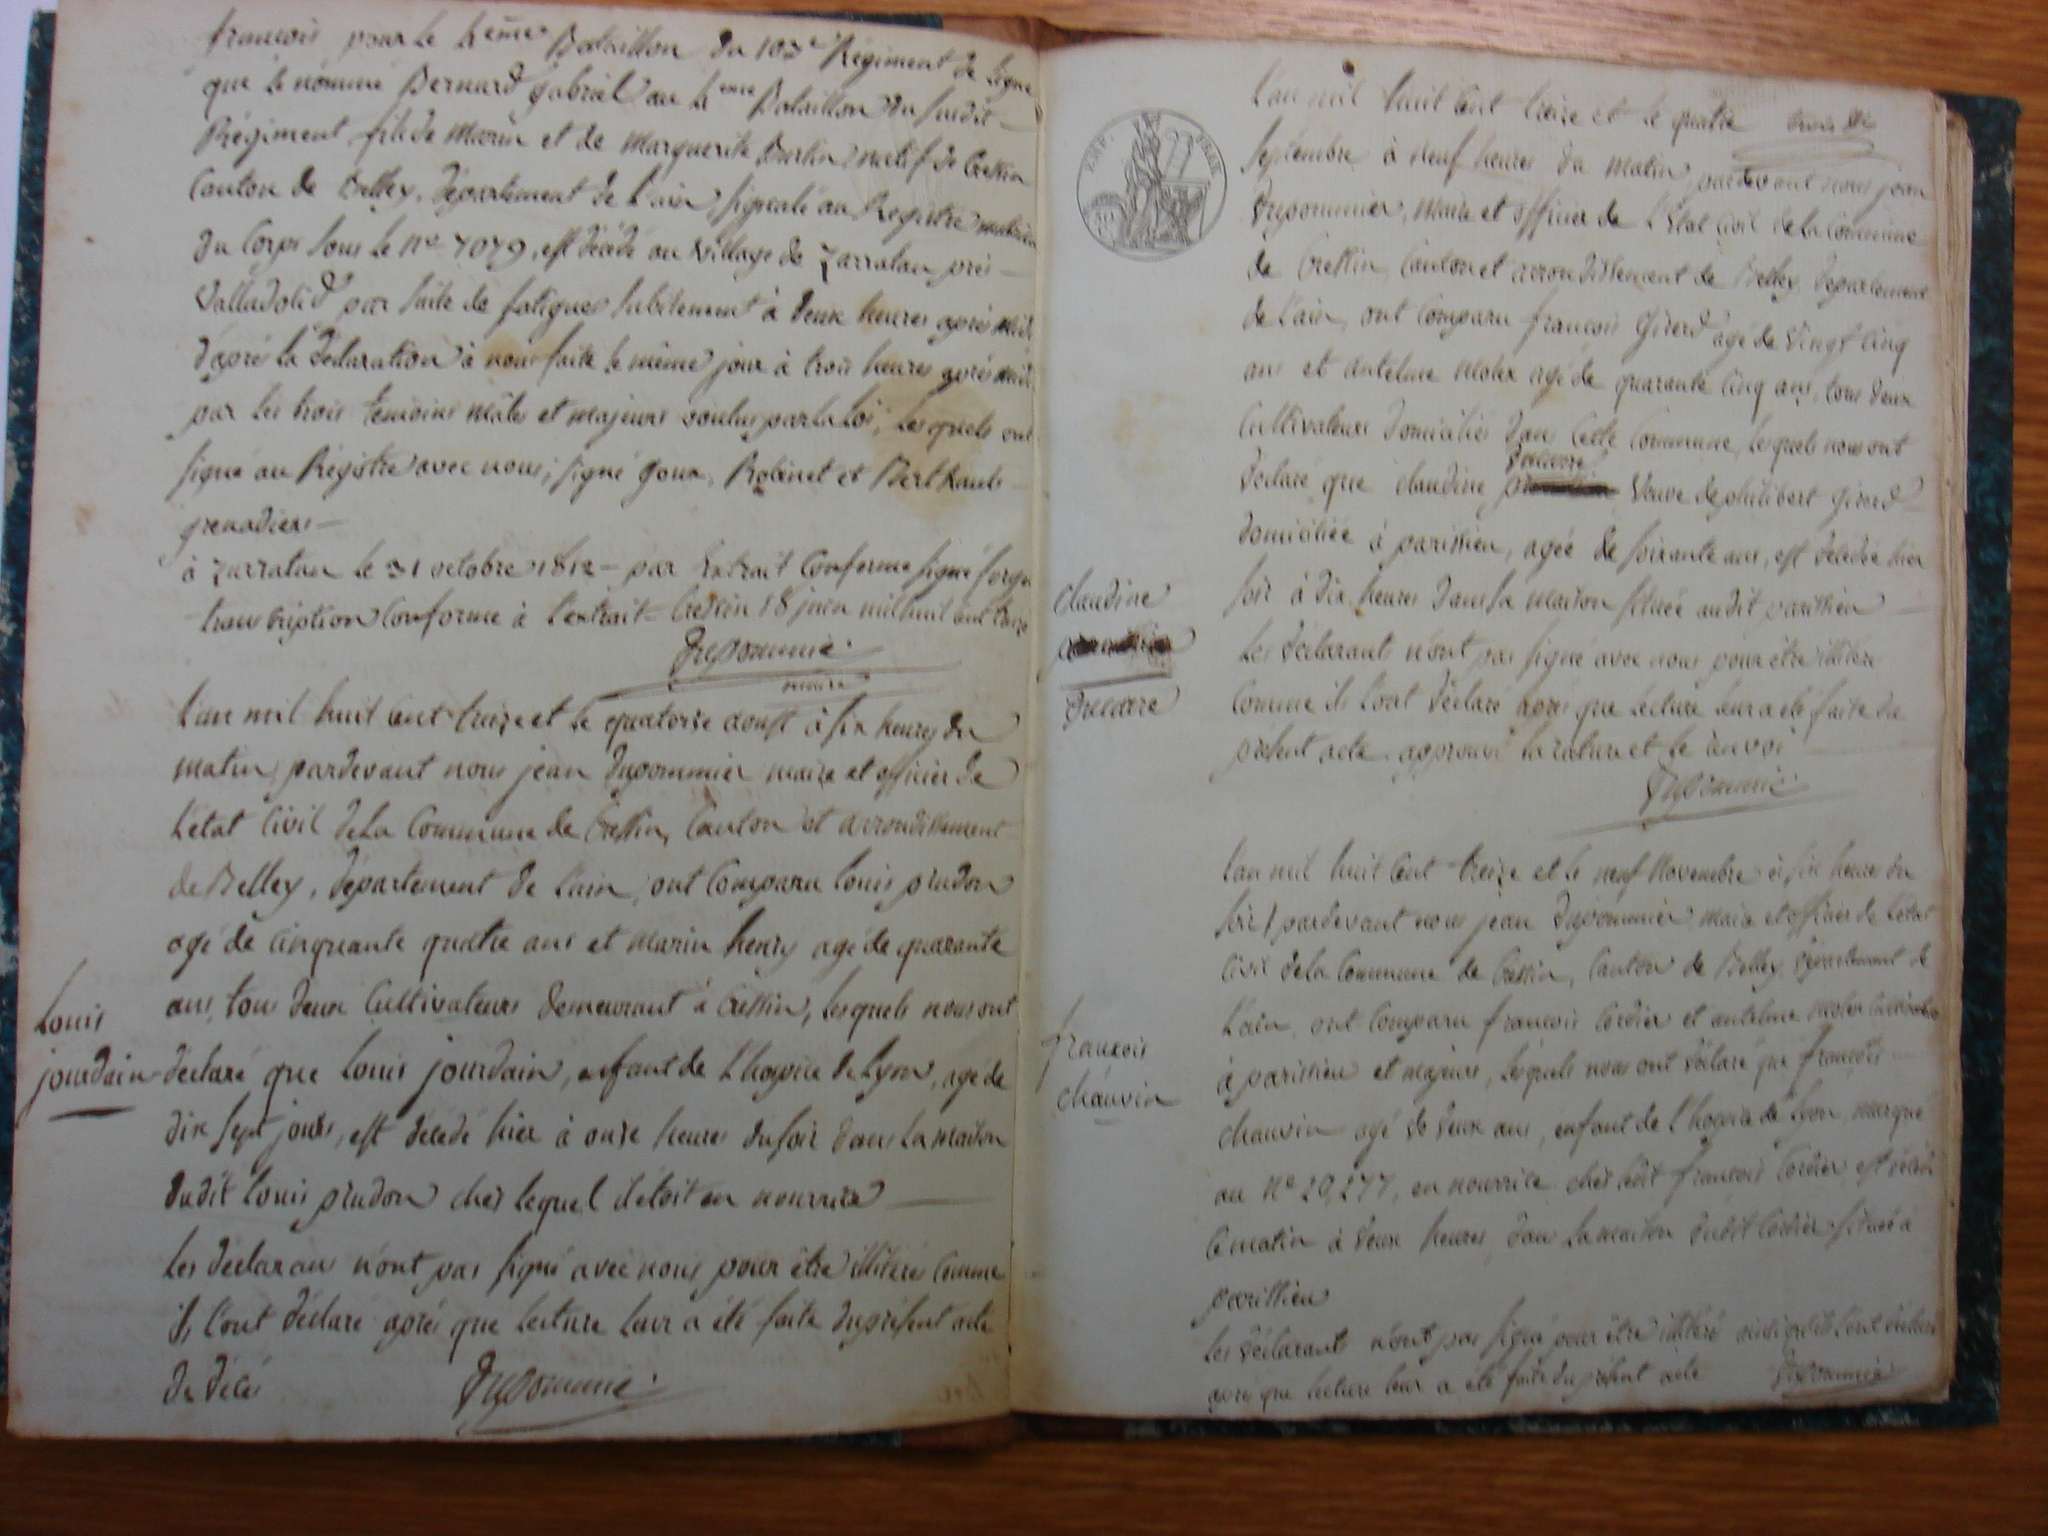 françois pour le 4ème Bataillon du 103e Régiment de ligne
que le nommé Bernard gabriel au 4eme Bataillon du susdit
Régiment fils de Marin et de Marguerite natif de Cressin
Canton de Belley, département de l'ain, signalé au Registre matricule
du Corps sous le No 7079, est décédé au Village de Zarratan près
Valladolid par suite de fatigues subitement à deux heures après midi
d'après la déclaration à nous faite le même jour à trois heures après midi
par les trois témoins mâles et majeurs voulus par la loi, les quels ont
signé au Registre avec nous; signé goux, Robinet et Berthault
grenadiers
à Zarratan le 31 octobre 1812 par Extrait Conforme signé
transcription Conforme à l'extrait Cressin 18 juin mil huit cent treize
Dupommié
maire
l'an mil huit cent treize et le quatorze aoust à six heures du
matin pardevant nous jean dupommier maire et officier de
l'état Civil de la Commune de Cressin, Canton et arrondissement
de Belley, département de l'ain, ont Comparu louis pindon
agé de Cinquante quatre ans et marin henry agé de quarante
ans, tous deux Cultivateurs demeurant à Cressin, lesquels nous ont
Louis
jourdain
déclaré que louis jourdain, enfant de l'hospice de Lyon, agé de
dix sept jours, est décédé hier à onze heures du soir dans la maison
dudit louis pindon chès lequel il étoit en nourrice
les déclarans n'ont pas signé avec nous pour être illitéré Comme
ils l'ont déclaré après que lecture leur a été faite du présent acte
de décés
Dupommié
l'an mil huit Cent treize et le quatre
septembre à neuf heures du matin pardevant nous jean
Dupommier, Maire et officier de l'Etat Civil de la Commune
de Cressin, Canton et arrondissement de Belley, département
de l'ain, ont Comparu françois Girerd agé de vingt Cinq
ans et antelme Molex agé de quarante Cinq ans, tous deux
Cultivateurs domiciliés dans Cette Commune, les quels nous ont
déclaré que claudine Veuve de philibert Girerd
domiciliée à parissieu, agée de soixante ans, est décédée hier
soir à dix heures dans sa maison située audit parissieu
Claudine
les déclarants n'ont pas signé avec nous pour être illitéré
Comme ils l'ont déclaré après que lecture leur a été faite du
présent acte approuvé la rature et le renvoi
Dupommié
l'an mil huit Cent treize et le neuf Novembre à six heures du
soir, pardevant nous jean dupommier maire et officier de l'état
Civil de la Commune de Cressin, Canton de Belley département de
l'ain, ont Comparu françois Cordier et antelme molex
françois
chauvin
à parissieu et majeurs, lesquels nous ont déclaré que françois
chauvin agé de deux ans, enfant de l'hospice de Lyon, marqué
au No 20,277, en nourrice chés ledit françois Cordier est décédé
Ce matin à deux heures dans la maison dudit Cordier située à
parissieu
les déclarants n'ont pas signé pour être illitéré ainsi qu'ils l'ont déclaré
après que lecture leur a été faite du présent acte
Dupommié